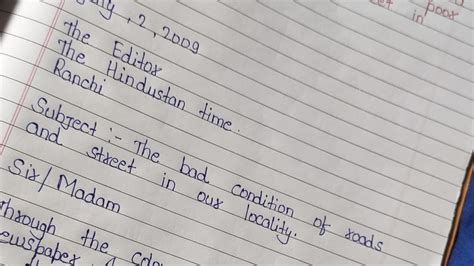 July, 2, 2009
The Editor
The Hindustan time.
Ranchi
Subject :- The bad condition of roads
and street in our locality.
Sir/Madam
Through the
poor
in